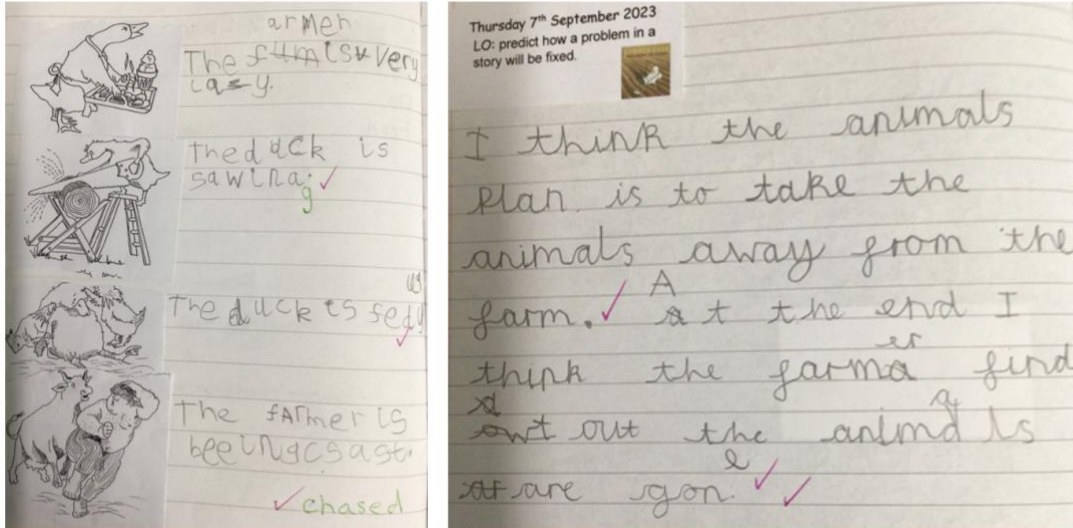 armer
The fumisv very
lazy.
the duck is
sawina.
g
The duck is fed!
The fArmer is
beeingcsast.
chased
Thursday 7th September 2023
LO: predict how a problem in a
story will be fixed.
I think the animals
plan. is to take the
animals away from the
farm. A
at the end I
er
think the farma find
out out the animals
a
are gon.
e